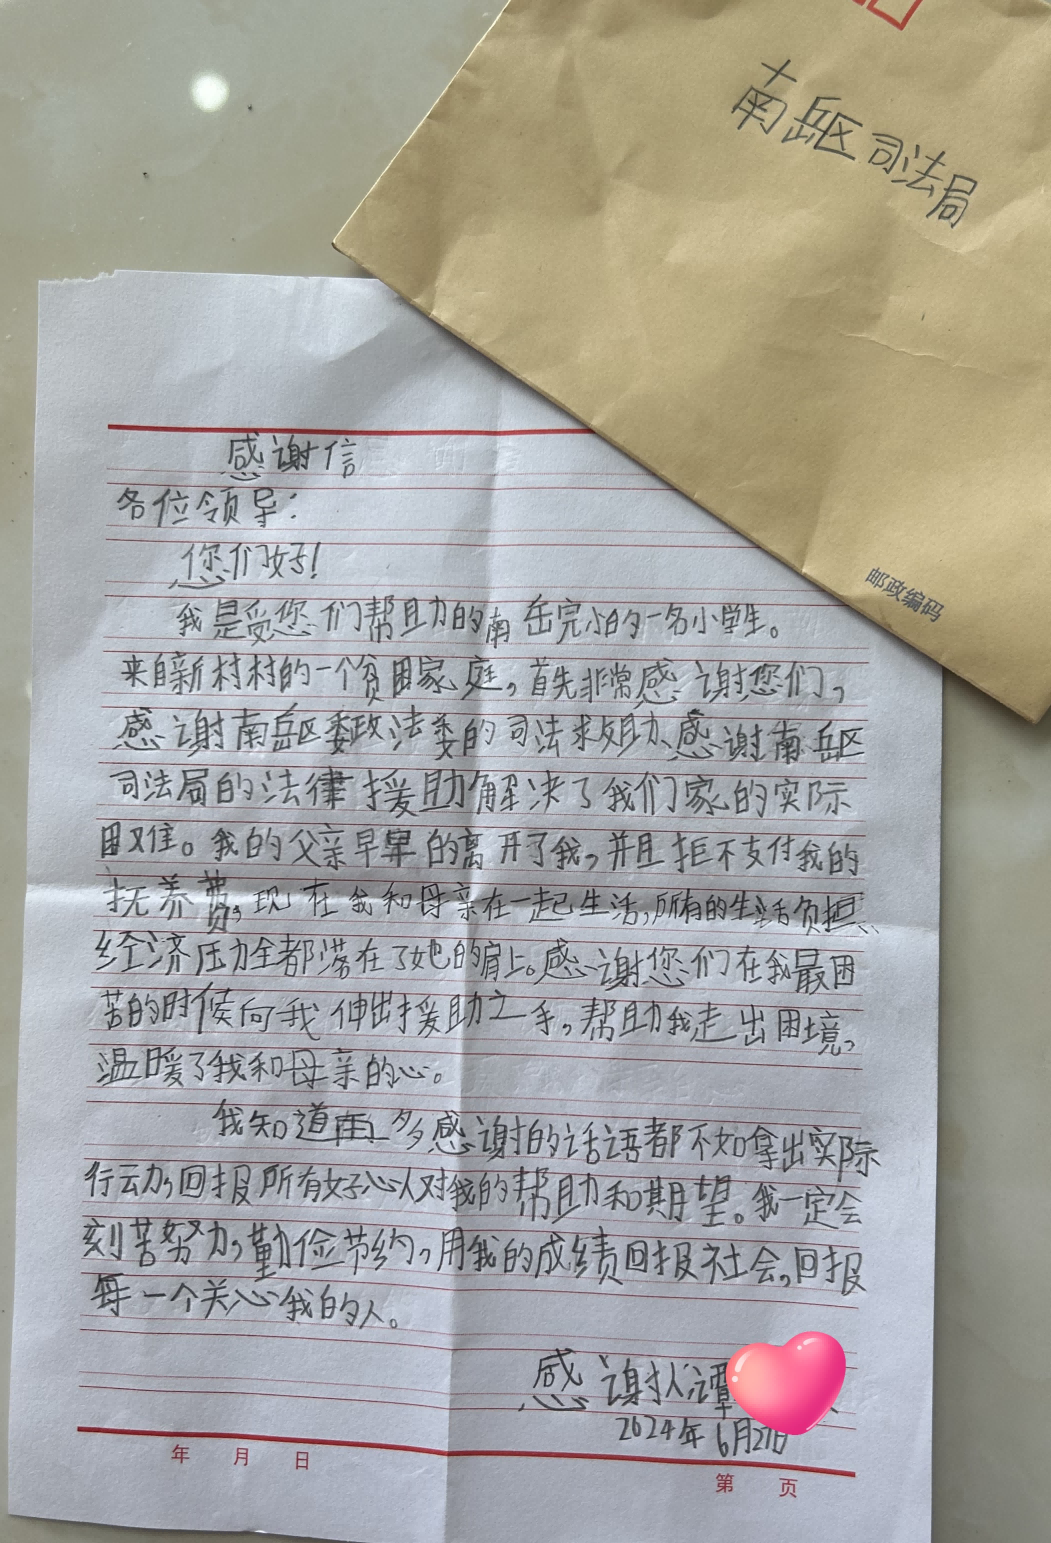 南岳区司法局
邮政编码
感谢信
各位领导：
您们好！
我是受您们帮助的南岳完小的一名小学生。
来自新村村的一个贫困家庭，首先非常感谢您们，
感谢南岳区委政法委的司法救助、感谢南岳区
司法局的法律援助解决了我们家的实际
困难。我的父亲早早的离开了我，并且拒不支付我的
抚养费，现在我和母亲在一起生活，所有的生活负担、
经济压力全都落在了她的肩上。感谢您们在我最困
苦的时候向我伸出援助之手，帮助我走出困境，
温暖了我和母亲的心。
我知道再多感谢的话语都不如拿出实际
行云力，回报所有好心人对我的帮助和期望。我一定会
刻苦努力，勤俭节约，用我的成绩回报社会，回报
每一个关心我的人。
感谢人：谭
2024年6月27日
年 月 日
第 页